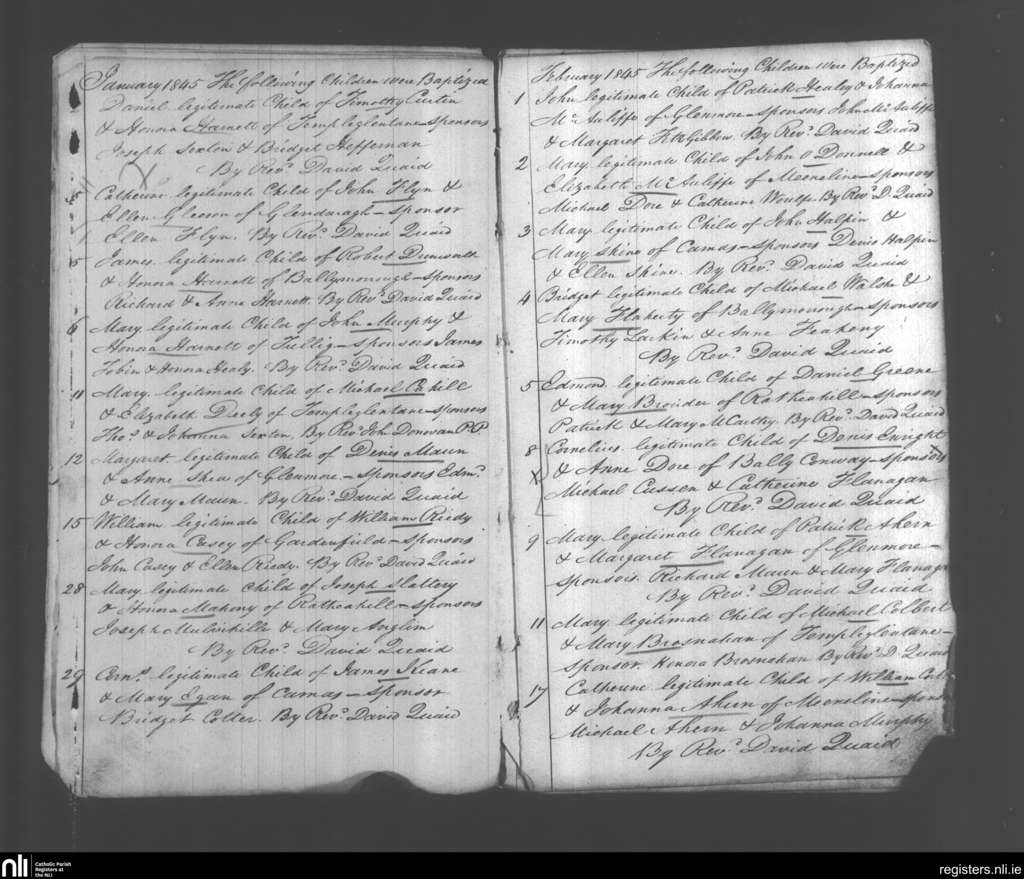 January 1845 The following Children were Baptized
Daniel legitimate Child of Timothy Curtin
& Honora Harnett of Templeglentane—sponsors
Joseph Sexton & Bridget Heffernan
By Revd. David Quaid
5 Catherine legitimate Child of John Flyn &
Ellen Gleeson of Glendaragh—Sponsor
Ellen Flyn. By Revd. David Quaid
5 James legitimate Child of Robert
& Honora Harnett of Ballymorough—sponsors
Richard & Anne Harnett. By Revd. David Quaid
6 Mary legitimate Child of John Murphy &
Honora Harnett of Killig—sponsors James
Tobin & Honora Healy. By Revd. David Quaid
11 Mary legitimate Child of Michael
& Elizabeth of Templeglentane—sponsors
Thos. & Johanna Sexton. By Revd. John Donovan P.P.
12 Margaret legitimate Child of Denis Maun
& Anne Shea of Glenmore—Sponsors Edmd.
& Mary Maun. By Revd. David Quaid
15 William legitimate Child of William Riedy
& Honora Casey of Gardenfield—sponsors
John Casey & Ellen Riedy. By Revd. David Quaid
28 Mary legitimate Child of Joseph Slattery
& Honora Mahony of Ratheahill—sponsors
Joseph Mulvihille & Mary Anglim
By Revd. David Quaid
29 Corns. legitimate Child of James Keane
& Mary Egan of Camas—Sponsor
Bridget Colter. By Revd. David Quaid
February 1845 The following Children were Baptized
1 John legitimate Child of Patrick Healey & Johanna
Mc.Auliffe of Glenmore—Sponsors John Mc.Auliffe
& Margaret FitzGibbon. By Revd. David Quaid
2 Mary legitimate Child of John O Donnell &
Elizabeth Mc.Auliffe of Mooneline—sponsors
Michael Dore & Catherine Woulfe. By Revd. D. Quaid
3 Mary legitimate Child of John Halpin &
Mary Shine of Camas—Sponsors Denis Halpin
& Ellen Shine. By Revd. David Quaid
4 Bridget legitimate Child of Michael Walshe &
Mary Flaherty of Ballymorough—sponsors
Timothy Larkin & Anne Feaheny
By Revd. David Quaid
5 Edmond legitimate Child of Daniel Greene
& Mary Broider of Ratheahill—sponsors
Patrick & Mary McCarthy. By Revd. David Quaid
8 Cornelius legitimate Child of Denis Enright
& Anne Dore of Bally Conway—sponsors
Michael Cussen & Catherine Flanagan
By Revd. David Quaid
9 Mary legitimate Child of Patrick Ahern
& Margaret Flanagan of Glenmore—
sponsors. Richard Maun & Mary Flanagan
By Revd. David Quaid
11 Mary legitimate Child of Michael Colbert
& Mary Brosnahan of Templeglentane—
sponsor. Honora Brosnahan By Revd. D. Quaid
17 Catherine legitimate Child of William
& Johanna Ahern of Mooneline—
Michael Ahern & Johanna Murphy
By Revd. David Quaid
nli Catholic Parish
Registers at
the NLI
registers.nli.ie